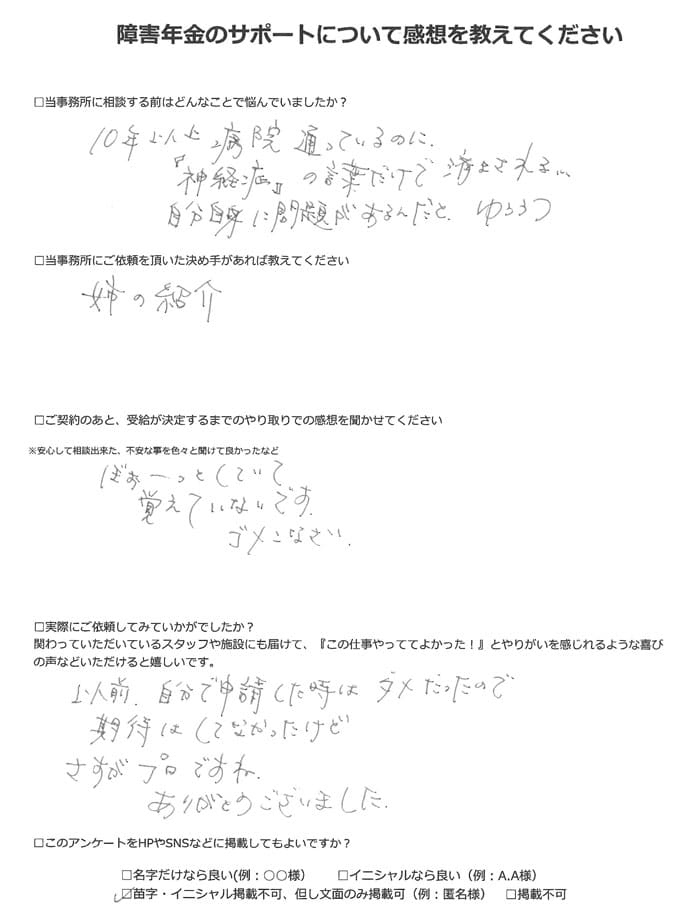 障害年金のサポートについて感想を教えてください
□当事務所に相談する前はどんなことで悩んでいましたか？
10年以上病院通っているのに、
『神経症』の言葉だけで済まされる…
自分自身に問題があるんだと、ゆううつ
□当事務所にご依頼を頂いた決め手があれば教えてください
姉の紹介
□ご契約のあと、受給が決定するまでのやり取りでの感想を聞かせてください
※安心して相談出来た、不安な事を色々と聞けて良かったなど
ぼぉーっとしていて
覚えていないです。
ゴメンなさい。
□実際にご依頼してみていかがでしたか？
関わっていただいているスタッフや施設にも届けて、『この仕事やっててよかった！』とやりがいを感じれるような喜び
の声などいただけると嬉しいです。
以前、自分で申請した時はダメだったので
期待はしてなかったけど
さすがプロですね。
ありがとうございました。
□このアンケートをHPやSNSなどに掲載してもよいですか？
□名字だけなら良い(例：○○様） □イニシャルなら良い（例：A.A様）
☑苗字・イニシャル掲載不可、但し文面のみ掲載可（例：匿名様） □掲載不可